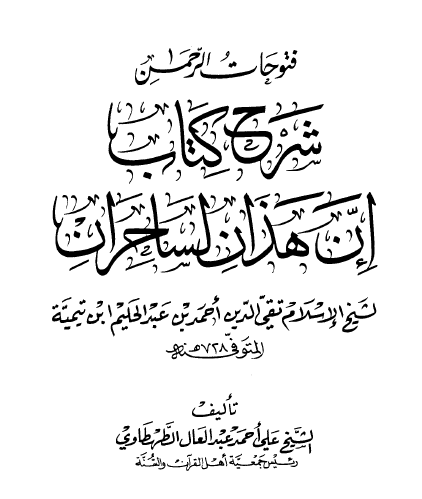 فتوحات الرحمن
شرح كتاب
إن هذان لساحران
لشيخ الإسلام تقي الدين أحمد بن عبد الحليم ابن تيمية
المتوفى ٧٢٨ هـ
تأليف
الشيخ علي أحمد عبد العال الطهطاوي
رئيس جمعية أهل القرآن والسنة